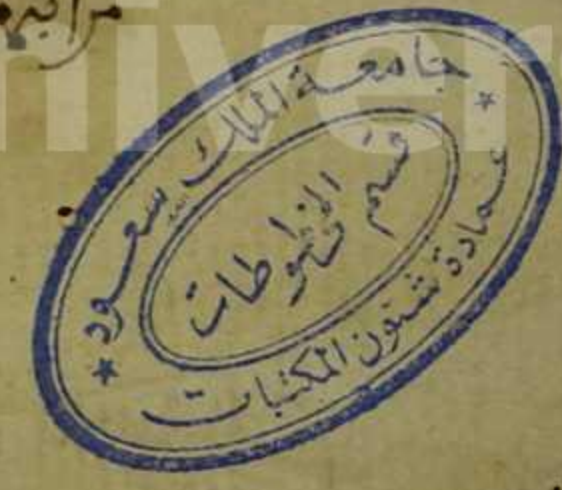 niver
جامعة الملك سعود
قسم المخطوطات
عمادة شئون المكتبات